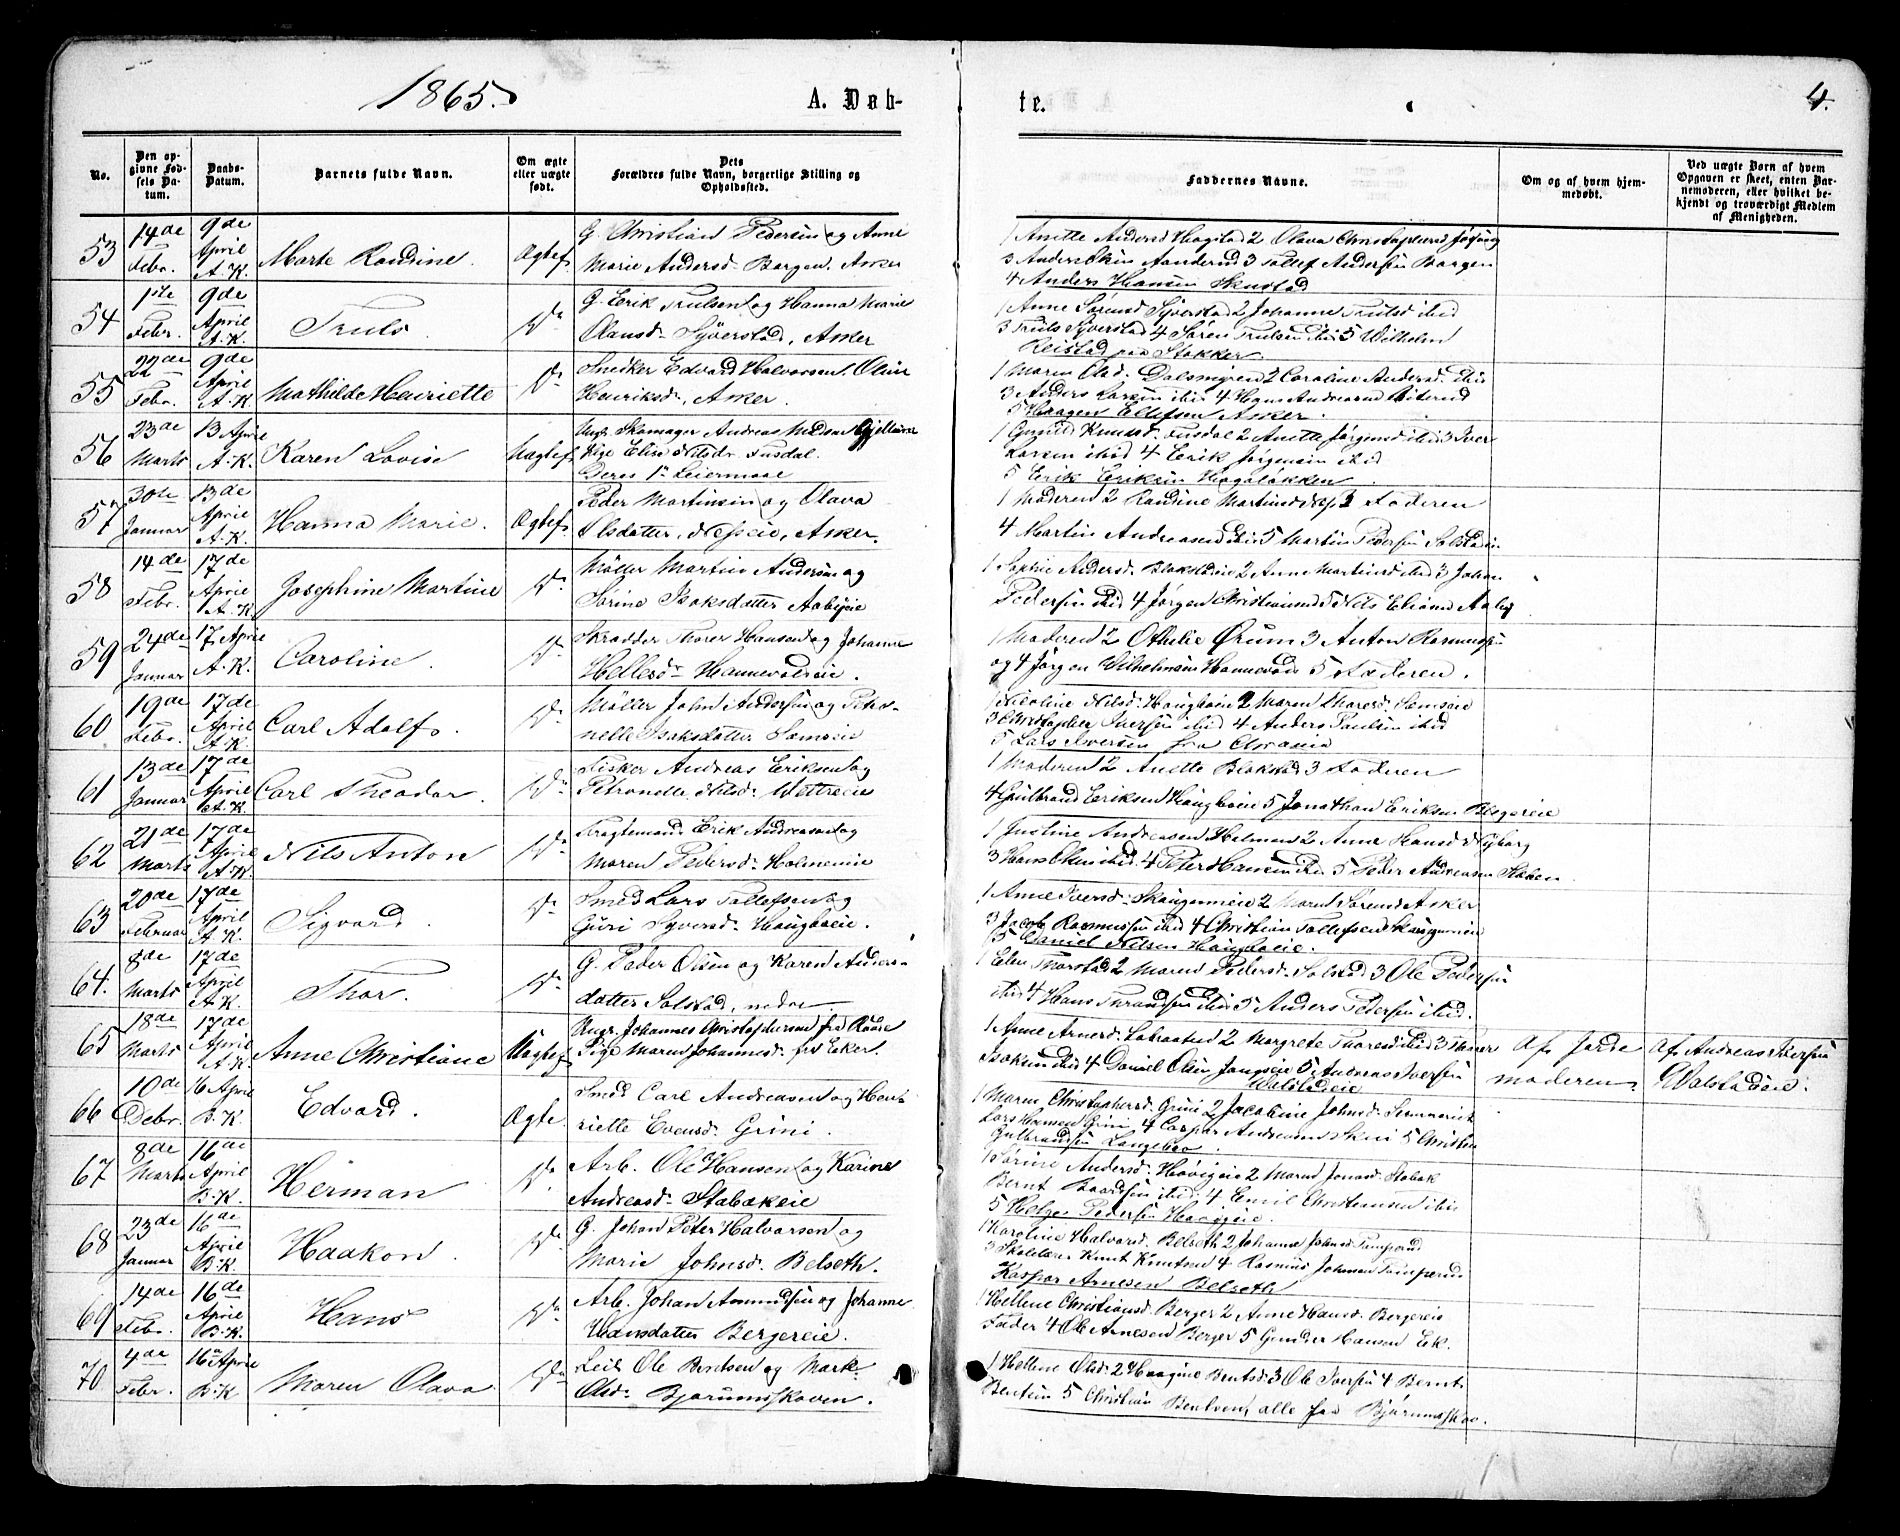 1865.
A. Døb-
te.
4.
No.
Den op-
givne Fød-
sels Da-
tum.
Daabs-
Datum.
Barnets fulde Navn.
Om ægte
eller uægte
født.
Dets
Forældres fulde Navn, borgerlige Stilling og
Opholdssted.
Faddernes Navne.
Om og af hvem hjem-
medøbt.
Ved uægte Børn af hvem
Opgaven er skeet, enten Bar-
nemoderen, eller hvilket be-
kjendt og troværdigt Medlem
af Menigheden.
53
14de
Febr.
9de
April
A.K.
Marte Randine.
Ægtef.
G. Christian Pedersen og Anne
Marie Andersd. Borgen. Asker
1 Anette Andersd Hogstad 2 Olava
3 Tollef Andersen Borgen
4 Anders Hansen Skustad
54
1ste
Febr.
9de
April
A.K.
Truls
Do
G. Erik Trulsen og Hanna Marie
Olausd. Syverstad, Asker
1 Anne Sørensd Syverstad 2 Johanne Trulsd ibid
3 Truls Syverstad 4 Søren Trulsen ibid 5 Wilhelm
Reistad paa Stokker.
55
22de
Febr.
9de
April
A.K.
Mathilde Henriette
Do
Snedker Edvard Halvorsen. Oline
Henriksd., Asker.
1 Maren Olsd. Dalsmyren 2 Caroline Andersd. ibid
3 Anders Larsen ibid 4
5 Haagen Ellefsen Asker.
56
23de
Marts
13 April
A.K.
Karen Lovise
Uægtef.
Ungk. Skomager Andreas Nilsen Gjellum
Pige Elise Nilsdr. Fusdal.
Deres 1ste Leiermaal
1 Gunild Knudsd. Fusdal 2 Anette Jørgensd ibid 3 Iver
Larsen ibid 4 Erik Jørgensen ibid
5 Erik Eriksen Hagaløkken.
57
30te
Januar
13de
April
A.K.
Hanna Marie.
Ægtef.
Peder Martinsen og Olava
Olsdatter, Næseie, Asker.
1 Moderen 2 Randine Martinsd Næs 3 Faderen
4 Martin Andreasen ibid 5 Martin Pedersen
58
14de
Febr.
17de
April
A.K.
Josephine Martine
Do
Møller Martin Andersen og
Sørine Isaksdatter Aabyeie
1 Sophie Andersd. Blakstadeie 2 Anne Martinsd ibid 3 Johan
Pedersen ibid 4 Jørgen Christiansen 5 Nils Aaby
59
24de
Januar
17 April
A.K.
Caroline.
Do
Skrædder Thorer Hansen og Johanne
Hellesd. Hannevoldeie.
1 Moderen 2 Othelie Ørum 3 Anton Rasmussen
og 4 Jørgen Vilhelmsen Hannevold 5 Faderen.
60
19de
Febr.
17de
April
A.K.
Carl Adolf.
Do
Møller John Andersen og Petro-
nelle Isaksdatter Semseie
1 Nicoline Nilsd. Haugboeie 2 Maren Thoresd. Semseie
3 Christopher Iversen ibid 4 Anders Paulsen ibid
5 Lars Iversen fra
61
13de
Januar
17de
April
A.K.
Carl Theodor.
Do
Fisker Andreas Eriksen og
Petronelle Nilsd. Wettreeie
1 Moderen 2 Anette Blakstad 3 Faderen
4 Gulbrand Eriksen Haugboeie 5 Jonathan Eriksen
62
21de
Marts
17de
April
A.K.
Nils Anton
Do
Fragtemand Erik Andreasen og
Maren Pedersd. Holmeneie
1 Justine Andreasen Holmen 2 Anne Hansd Nyborg
3 Hans Olsen ibid 4 Peter Hansen ibid 5 Peder Andreasen Holmen.
63
20de
Februar
17de
April
A.K.
Sigvard.
Do
Smed Lars Tollefsen og
Guri Syversd. Haugboeie.
1 Anne Iversd. Skaugumeie 2 Maren Sørensd Asker
3 Jacob Rasmussen ibid 4 Christian Tollefsen Skaugumeie
5 Daniel Nilsen Haugboeie.
64.
8de
Marts
17de
April
A.K.
Thor.
Do
G. Peder Olsen og Karen Anders-
datter Solstad, nedre
1 Elen Thorstad 2 Maren Pedersd. Solstad 3 Ole Pedersen
ibid 4 Hans ibid 5 Anders Pedersen ibid.
65
18de
Marts
17de
April
A.K.
Anne Christiane
Uægtef
Ungk. Johannes Christophersen fra Raade
Pige Maren Johannesd. fra Eker.
1 Anne Arnesd. 2 Margrete Thoresd ibid 3 Thorer
Isaksen ibid 4 Daniel Olsen Jongseie 5 Andreas Iversen
Valstadeie
Af Jorde
moderen.
Af Andreas Iversen
Valstadeie.
66
10de
Febr.
16 April
B.K.
Edvard.
Ægte.
Smed Carl Andreasen og Hen-
riette Evensd. Grini.
1 Maren Christophersd. Grini 2 Jacobine Johnsd.
Lars Hermansen Grini 4 Caspar Andreassen Skui 5 Christian
Gulbrandsen
67
8de
Marts
16de
April
B.K.
Herman
Do
Arb. Ole Hansen og Karine
Andreasd. Stabækeie
1 Sørine Andersd. Høvigeie 2 Maren Jonasd. Stabæk
Bernt Baardsen ibid 4 Emil Christiansen ibid
5 Helge Pedersen Høvigeie.
68
23de
Januar
16de
April
B.K.
Haakon.
Do
G. Johan Peter Halvorsen og
Marie Johnsd. Belseth.
1 Karoline Halvorsd. Belseth 2 Johanne Johnsd Tamperud
3 Skolelærer Knut Knutsen 4 Rasmus Johnsen Tamperud
Kaspar Arnesen Belseth
69
14de
Febr.
16de
April
B.K.
Hans
Do
Arb. Johan Amundsen og Johanne
Hansdatter Bergereie.
1 Hellene Christiansd. Berger 2 Anne Hansd. Bergereie
Fader 4 Ole Arnesen Berger 5 Gunder Hansen Ek.
70
4de
Febr.
16 April
B.K
Maren Olava.
Do
Leil. Ole Berntsen og Marte
Olsd. Bjørumsskoven.
1 Hellene Olsd. 2 Haagine Berntsd. 3 Ole Iversen 4 Bernt
Berntsen 5 Christian Bentsen, alle fra Bjørumsskov.